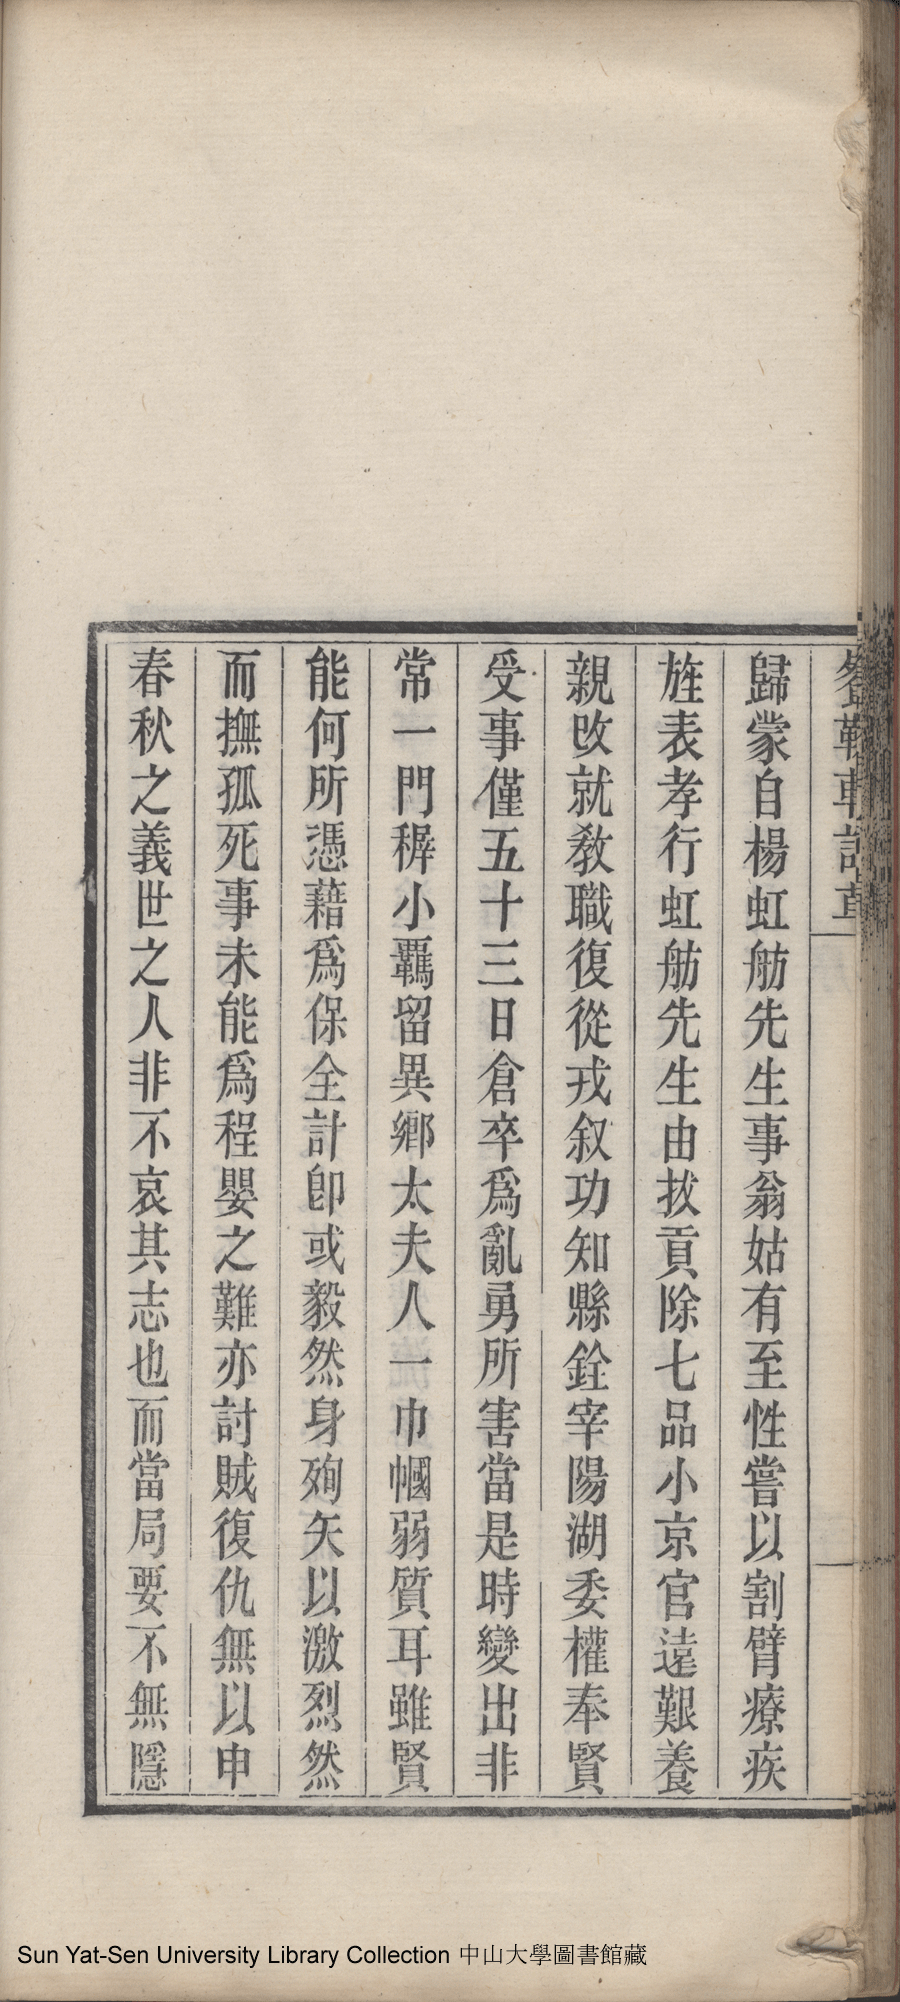 歸蒙自楊虹舫先生事翁姑有至性嘗以割臂療疾
旌表孝行虹舫先生由拔貢除七品小京官遠艱養
親改就教職復從戎叙功知縣銓宰陽湖委權奉賢
受事僅五十三日倉卒爲亂勇所害當是時變出非
常一門穉小羈留異鄉太夫人一巾幗弱質耳雖賢
能何所憑藉爲保全計卽或毅然身殉矢以激烈然
而撫孤死事未能爲程嬰之難亦討賊復仇無以申
春秋之義世之人非不哀其志也而當局要不無隱
Sun Yat-Sen University Library Collection 中山大學圖書館藏